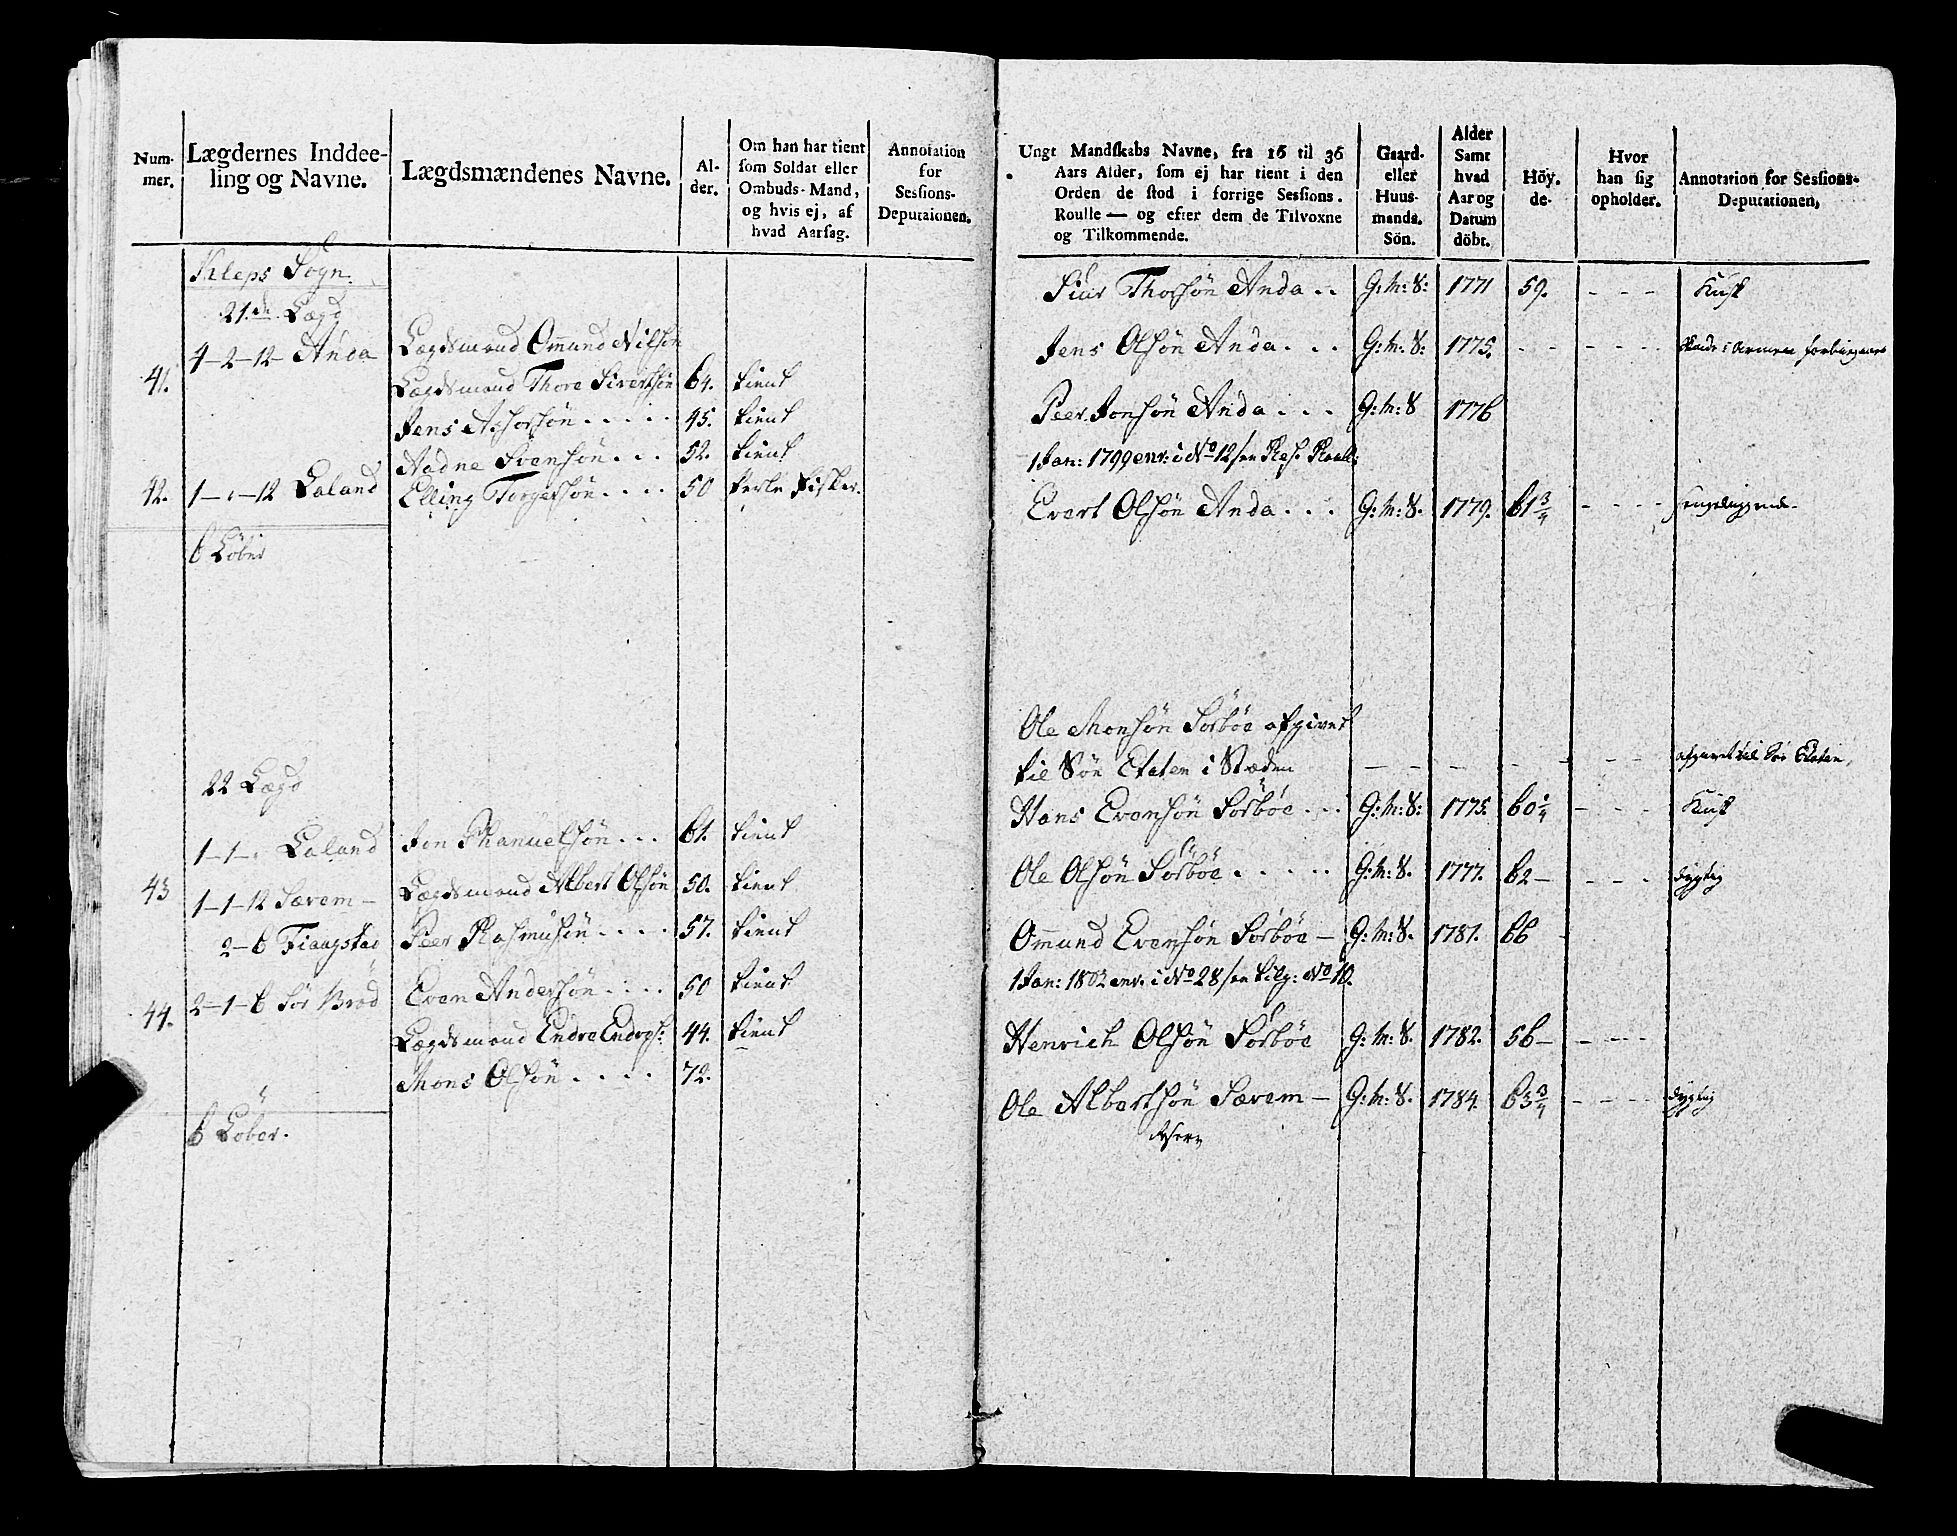 Num-
mer.
Lægdernes Inddee-
ling og Navne.
Lægdsmændenes Navne.
Al-
der.
Om han har tient
som Soldat eller
Ombuds-Mand,
og hvis ej, af
hvad Aarsag.
Annotation
for
Sessions-
Deputaionen.
Kleps Sogn.
21.de Lægd
4-2-12- Anda
Lægdsmand Omund Nilsøn
41.
Lægdsmand Thore Sivertsøn 64. tient
Jens Assersøn . . . . . 45. tient
Aadne Svensøn . . . 52. tient
42. 1-,-12 Laland Elling Torgersøn . . . . 50 Perle Fisker.
6 Løber
22 Lægd
1-1-, Laland Jon Phanuelsøn . . . 61. tient
43 1-1-12 Særem- Lægdsmand Albert Olsøn 50. tient
2-6 Tiaagstad Peer Rasmusøn . . . . 57. tient
2-1-6 Sør Brød Even Andersøn . . . . 50 tient
44. Lægdsmand Endre Endres: 44. tient
Mons Olsøn . . . . 72.
6 Løber.
Ungt Mandskabs Navne, fra 16 til 36
Aars Alder, som ej har tient i den
Orden de stod i forrige Sessions.
Roulle — og efter dem de Tilvoxne
og Tilkommende.
Gaard-
eller
Huus-
mands.
Sön.
Alder
Samt
hvad
Aar og
Datum
döbt.
Höy.
de-
Hvor
han sig
opholder.
Annotation for Sessions-
Deputationen,
Siur Thorsøn Anda . . G:M:S: 1771 59. - - - Kusk
Jens Olsøn Anda . . . G:M:S: 1775. - - - - - - forbigaaes
Peer Jonsøn Anda . . . G:M:S 1776
1 Jan: 1799 enr: i No 12 sen Res. Roull:
Evert Olsøn Anda . . . G:M:S. 1779. 61 3/4 - - - -
Ole Monsøn Sørbøe afgivet
til Søe Etaten i Stæden - - - - - - - afgivet til Søe Etaten,
Hans Evensøn Sørbøe . . . G:M:S: 1775. 60 1/4 - - - Kusk
Ole Olsøn Sørbøe . . . . . G:M:S. 1777. 62 - - - - dygtig
Omund Evensøn Sørbøe - G:M:S. 1781. 66
1 Jan: 1802 enr. i No 28 sen tilg: No 10.
Henrich Olsøn Sørbøe G:M:S. 1782. 56 - - - - -
Ole Albertsøn Særem - G:M:S. 1784. 63 3/4 - - - - dygtig